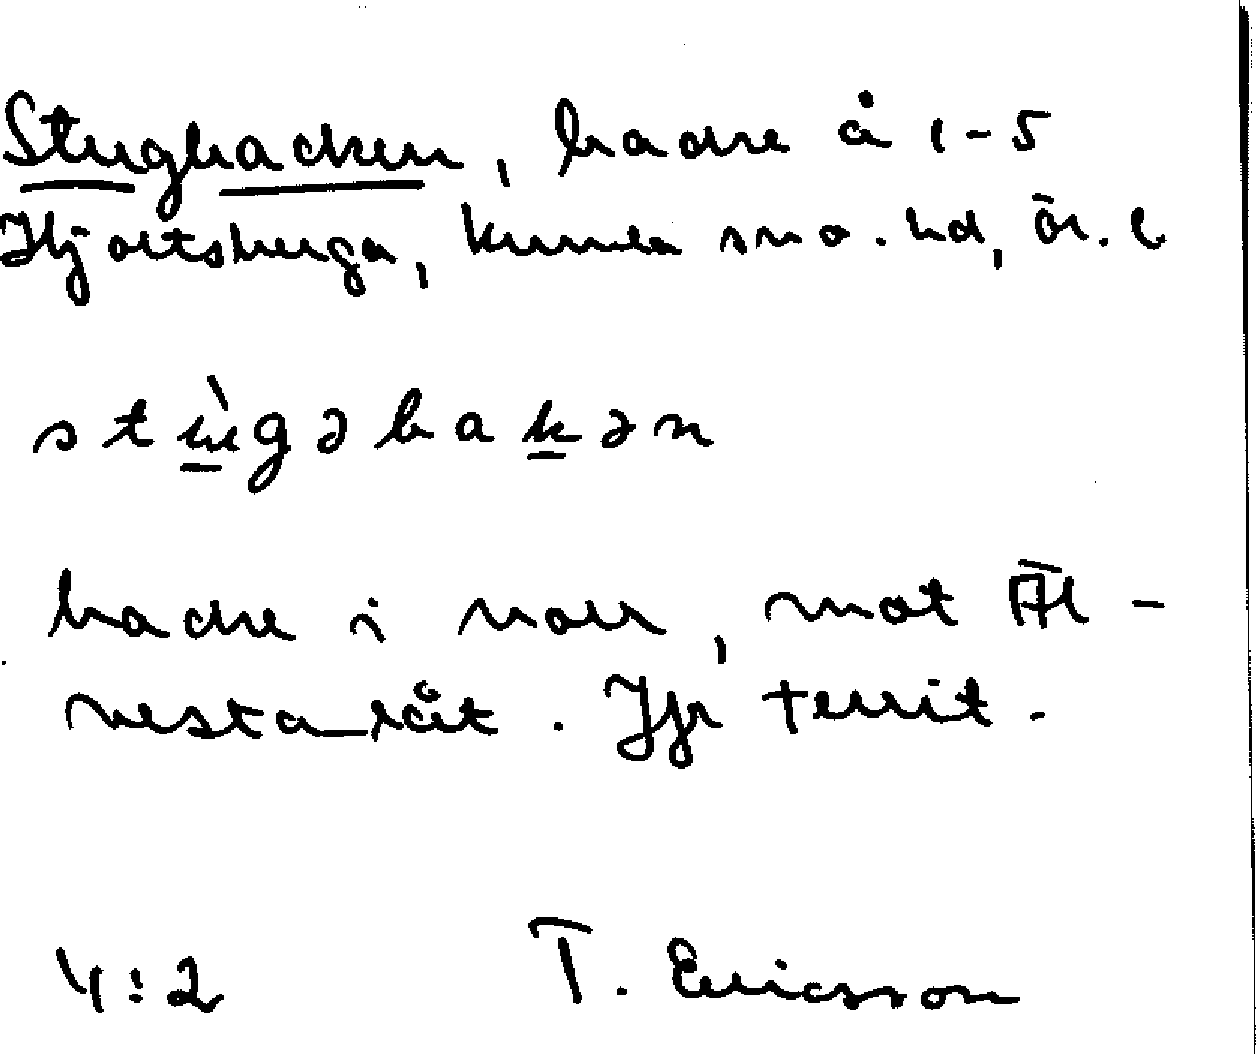 Stugbacken, backe å 1-5
Hjortsberga, Kumla sn o. hd, ör. l
stùgəbakən
backe i norr, mot Äl-
vesta-råt. Jfr territ.
4:2 T. Ericsson